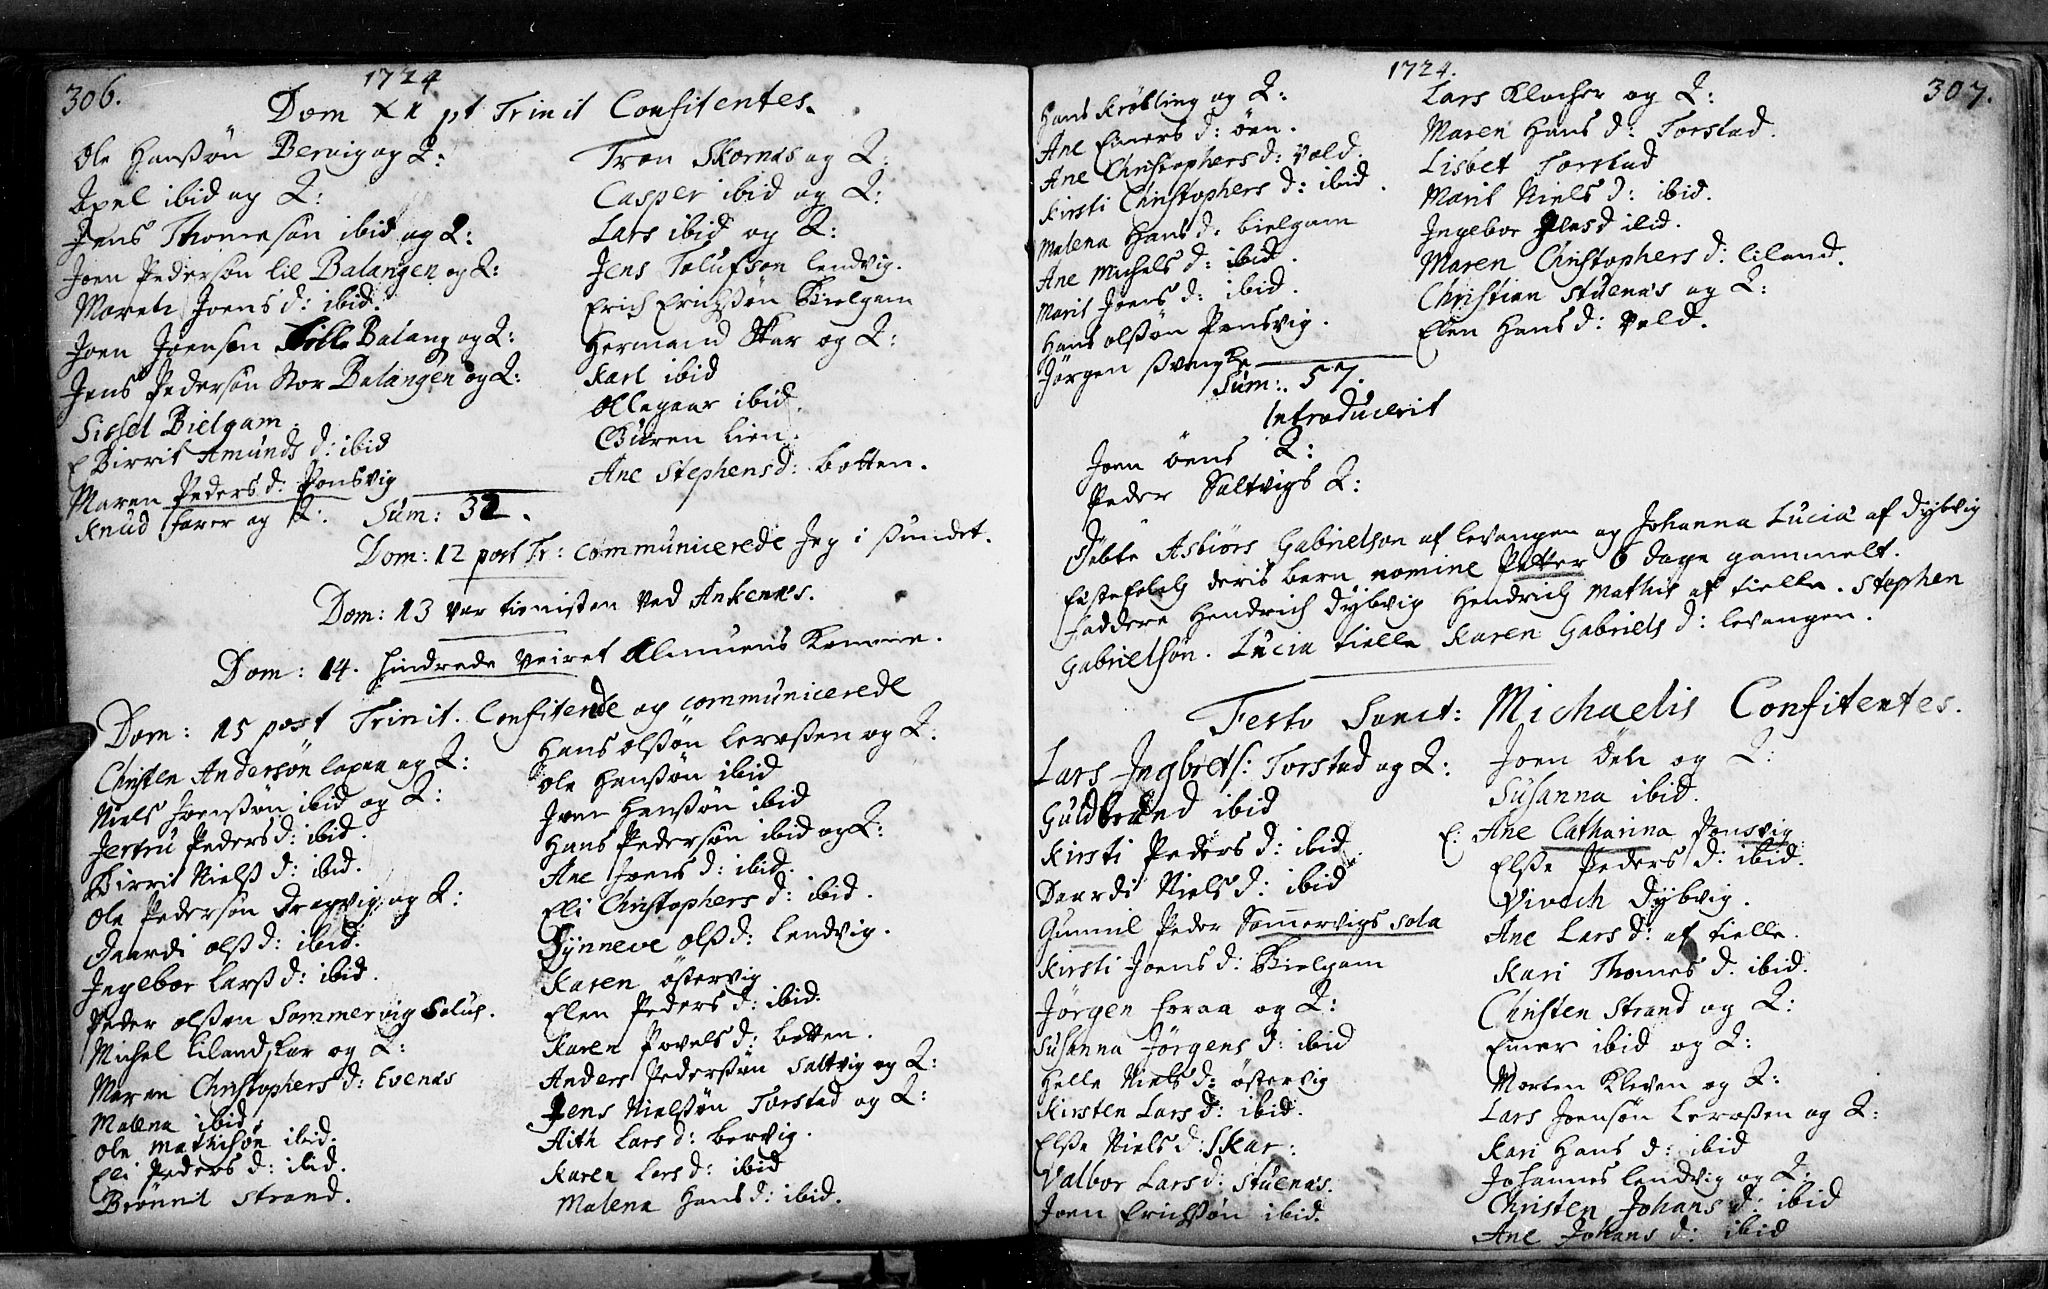 306.
1724
Dom XI pt Trinit Confitentes.
Ole Hanssøn Bervig og Q:
Axel ibid og Q:
Jens Thomesøn ibid og Q:
Joen Pedersøn lil Balangen og Q:
Mareth Joens d: ibid.
Joen Joensøn Balang og Q:
Jens Pedersøn Stor Balangen og Q:
Sissel Bielgam
E Birrit Amunds d: ibid
Maren Peders d: Ponsvig
Knud forer og Q:
Tron Skornes og Q:
Casper ibid og Q:
Lars ibid og Q:
Jens Tolufsøn lendvig.
Erich Erichssøn Bielgam
Hermand Skar og Q:
Karl ibid
Ollegaar ibid.
Guren lien.
Ane Stephens d: botten.
Sum: 32.
Dom: 12 post Tr: communicerede Jeg i Sundet.
Dom: 13 var tienisten ved Ankenæs.
Dom: 14. hindrede veiret Almuens Komme.
Dom: 15 post Trinit. Confitende og communicerede
Christen Andersøn lapaa og Q:
Niels Joenssøn ibid og Q:
Jertru Peders d: ibid.
Birrit Nielss d: ibid.
Ole Pedersøn Dragvig og Q:
Daardi olss d: ibid.
Ingebor Larss d: ibid.
Peder olssen Sommervig Solus.
Michel Lilandskar og Q:
Maren Christophers d: Evenæs
Malena ibid.
Ole Mathisøn ibid.
Eli Peders d: ibid.
Brønnil Strand.
Hans olssøn lervssen og Q:
Ole Hanssøn ibid
Joen Hanssøn ibid
Hans Pedersøn ibid og Q:
Ane Joens d: ibid.
Eli Christophers d: ibid.
Synneve olss d: lendvig.
Karen østervig
Elen Peders d: ibid.
Karen Povels d: botten.
Anders Pederssøn Saltvig og Q:
Jens Nielssøn Torstad og Q:
Aith Lars d: bervig.
Karen Lars d: ibid
Malena Hans d: ibid.
307.
1724.
Hans Krøbling og Q:
Ane Emers d: øen.
Ane Christophers d: Vold.
Kirsti Christophers d: ibid.
Malena Hans d: bielgam
Ane Michels d: ibid.
Marit Joens d: ibid.
Hans olssøn Ponsvig.
Jørgen
Lars Klocher og Q:
Maren Hans d: Torstad.
Lisbet Torstad
Marit Niels d: ibid.
Ingebor d ibid.
Maren Christophers d: liland.
Christian Stuenæs og Q:
Elen Hans d: Vold.
Sum: 57.
Introducerit
Joen øens Q:
Peder Saltvigs Q:
Døbte Asbiørs Gabrielsøn af levangen og Johanna Lucia af Dybvig
deris barn nomine Petter 6 dage gammelt.
faddere Hendrich Dybvig Hendrich Mathis af tielle. Stephen
Gabrielsøn. Lucia tielle Karen Gabriels d: levangen.
Festo Sanct: Michaelis Confitentes.
Lars Ingbrets: Torstad og Q:
Guldbrand ibid
Kirsti Peders d: ibid
Daardi Niels d: ibid
Gunnil Peder Sommervigs sola
Kirsti Joens d: Bielgam
Jørgen foraa og Q:
Susanna Jørgens d: ibid
Helle Niels d: østervig
Kirsten Lars d: ibid.
Elsse Niels d: Skar:
Valbor Lars d: Stuenæs.
Joen Erichssøn ibid.
Joen Øen og Q:
Susanna ibid.
E: Ane Catharina Ponsvig
Elsse Peders d: ibid.
Vivech Dybvig.
Ane Lars d: af tielle.
Kari Thomes d. ibid.
Christen Strand og Q:
Emer ibid og Q:
Morten Kleven og Q:
Lars Joensøn lervssen og Q:
Kari Hans d: ibid
Johannes lendvig og Q:
Christen Johans d: ibid
Ane Johans d: ibid